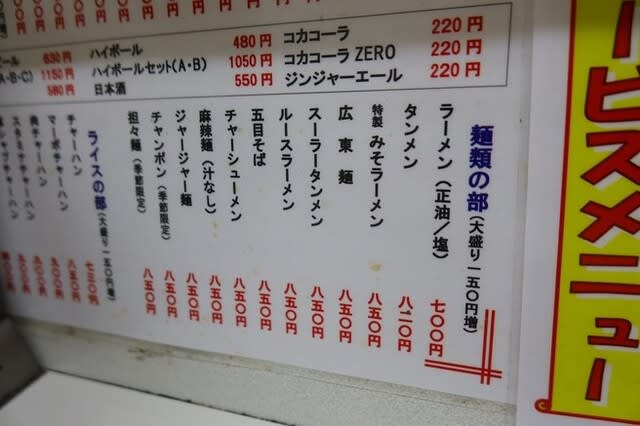 630円
1150円
580円
ハイボール 480円
ハイボールセット(A・B) 1050円
日本酒 550円
コカコーラ 220円
コカコーラ ZERO 220円
ジンジャーエール 220円
麺類の部(大盛り一五〇円増)
ラーメン(正油/塩) 七〇〇円
タンメン 八二〇円
特製みそラーメン 八五〇円
広東麺 八五〇円
スーラータンメン 八五〇円
ルースラーメン 八五〇円
五目そば 八五〇円
チャーシューメン 八五〇円
麻辣麺(汁なし) 八五〇円
ジャージャー麺 八五〇円
チャンポン(季節限定) 八五〇円
担々麺(季節限定) 八五〇円
ライスの部(大盛り一五〇円増)
チャーハン 七三〇円
マーボチャーハン 八五〇円
肉チャーハン 九〇〇円
スタミナチャーハン 九〇〇円
ービスメニュー